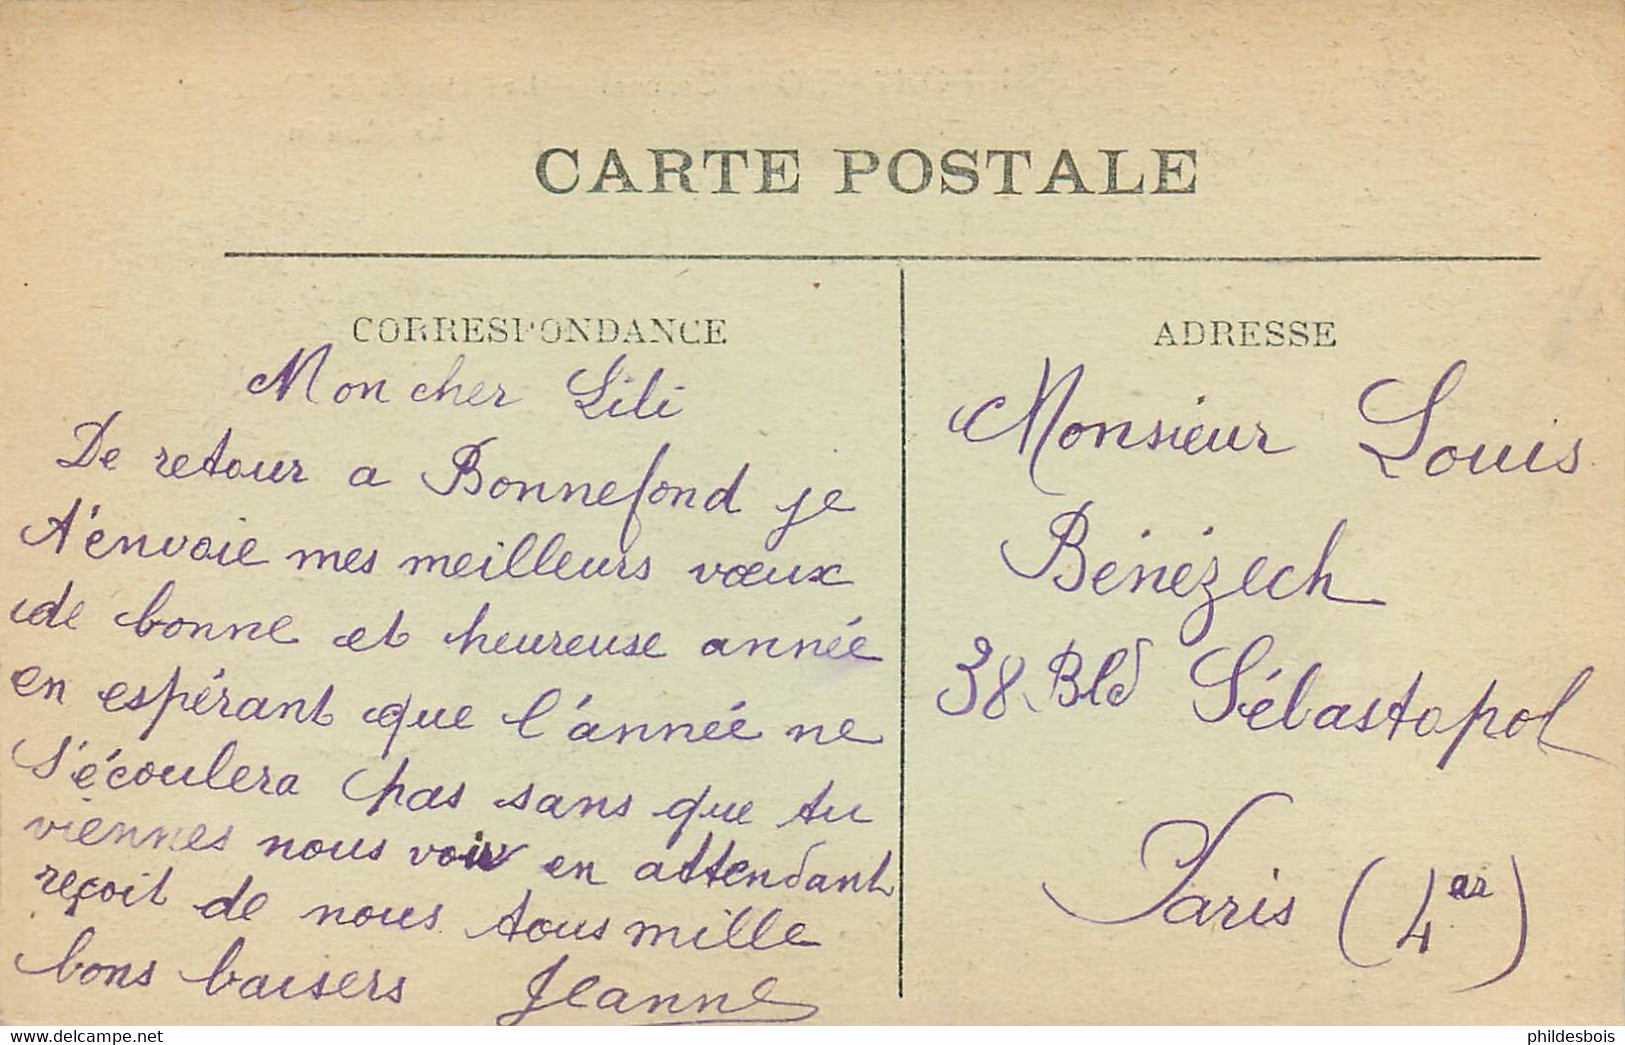 CARTE POSTALE
CORRESPONDANCE
Mon cher Lili
De retour a Bonnefond je
t'envoie mes meilleurs vœux
de bonne et heureuse année
en espérant que l'année ne
s'écoulera pas sans que tu
viennes nous voir en attendant
reçoit de nous tous mille
bons baisers Jeanne
ADRESSE
Monsieur Louis
Bénézech
38 Bld Sébastopol
Paris (4er)
phildesbois